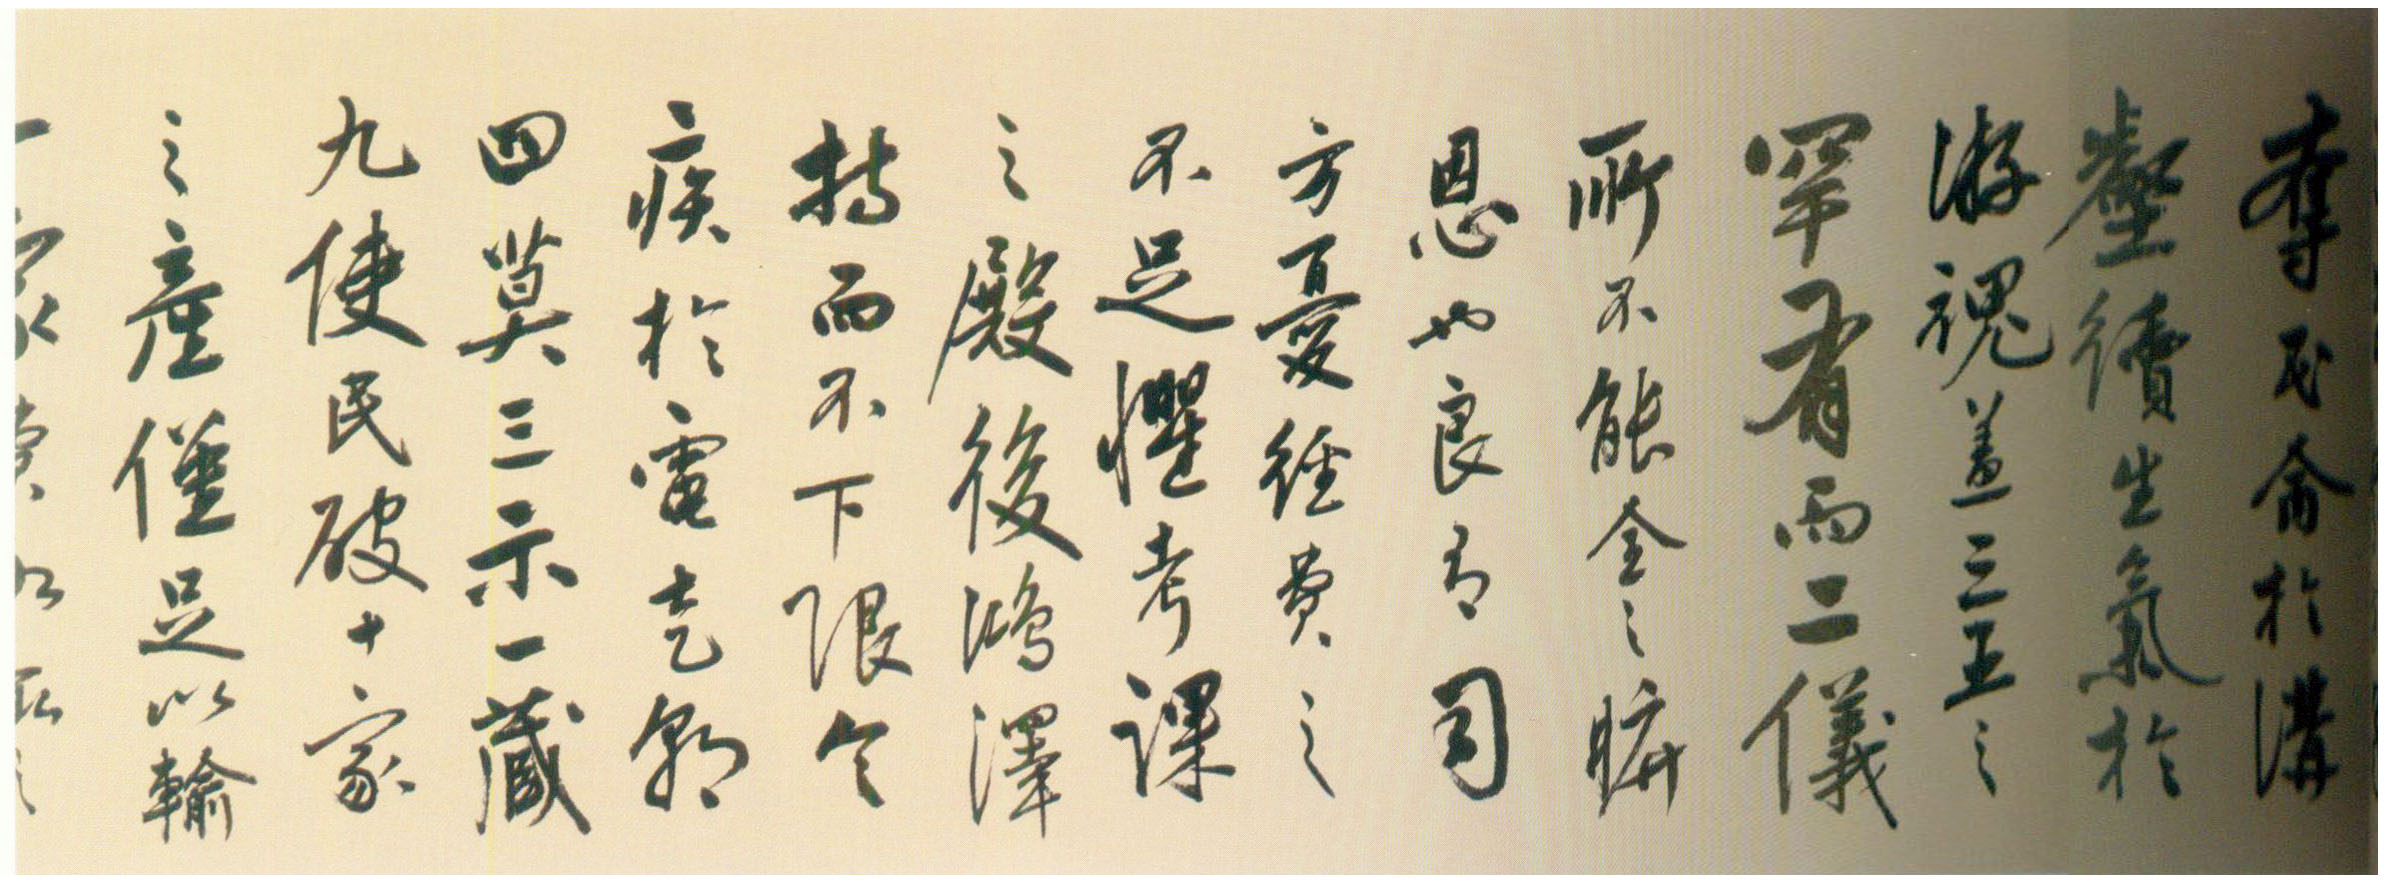 奪民命於溝
壑續生氣於
游魂蓋三王之
罕有而二儀
所不能全之
恩也良有司
方憂經費之
不足懼考課
之殿後鴻澤
持而不下限令
疾於雷
四莫三示一藏
九使民破十家
之產僅足以輸
一家